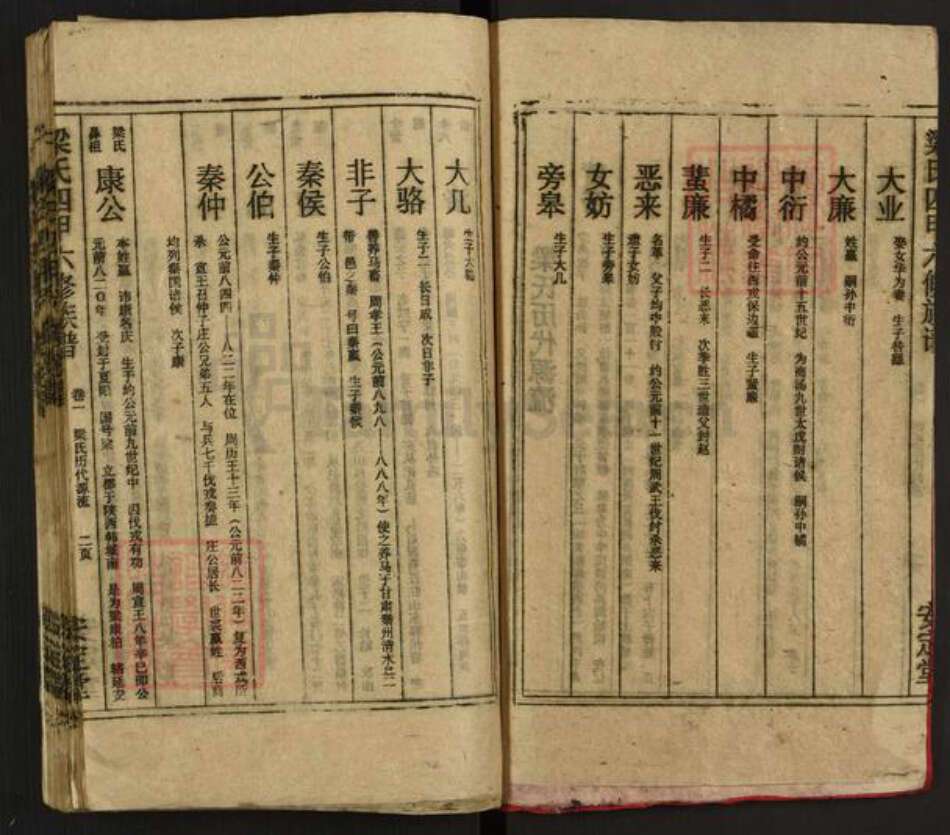 大业
娶女华为妻 生子伯益
大廉
姓嬴 嗣孙中衍
中衍
约公元前十五世纪 为商汤九世太戊时诸候 嗣孙中橘
中橘
受命往西戎保边疆 生子蜚廉
蜚廉
生子二 长恶来 次季胜三世造父封赵
恶来
名革 父子均事殷纣 约公元前十一世纪周武王伐纣杀恶来
遗子女妨
女妨
生子旁皋
旁皋
生子大几
大几
生子大骆
大骆
生子二 长曰成 次曰非子
非子
善养马畜 周孝王(公元前八九八——八八八年)使之养马于甘肃秦州清水县二
号曰秦嬴 生子秦候
秦侯
生子公伯
公伯
生子秦仲
秦仲
公元前八四四——八二二年在位 周历王十三年(公元前八二二年)复为西戎所
杀 宣王召仲子庄公兄弟五人 与兵七千伐戎奏捷 庄公居长 世袭嬴姓
均列秦国诸候 次子康
梁氏鼻祖
康公
本姓嬴 讳康名庆 生于约公元前九世纪中 因伐戎有功 周宣王八年辛巳即公
元前八二〇年 受封于夏阳 国号梁 立都于陕西韩城南 是为梁康伯
梁氏四甲六修族谱 卷一 梁氏历代源流 二页
安定堂